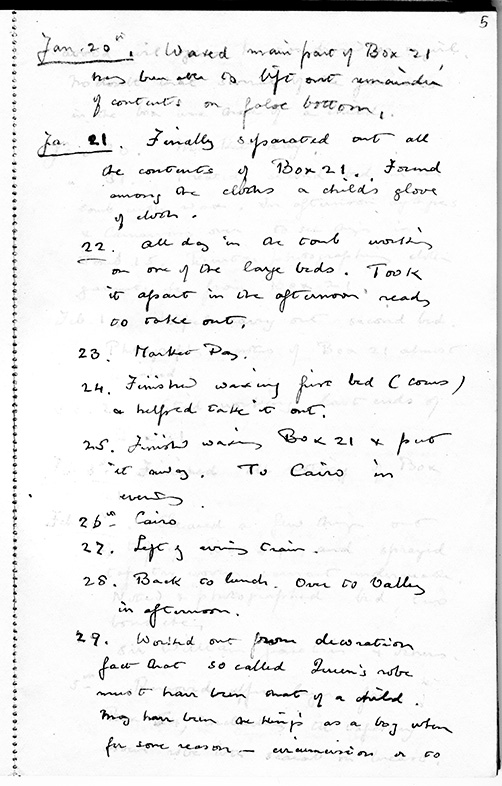 5
Jan. 20th. Waxed main part of Box 21,
has been able to lift out remainder
of contents on false bottom.
Ja 21. Finally separated out all
the contents of Box 21. Found
among the cloths a child's glove
of cloth.
22. All day in the tomb working
on one of the large beds. Took
it apart in the afternoon ready
to take out.
23. Market Day.
24. Finished waxing first bed (cows)
& helped take it out.
25. Finished waxing Box 21 & put
it away. To Cairo in
evening
26th Cairo
27. Left by evening train.
28. Back to lunch. Over to Valley
in afternoon.
29. Worked out from decoration
fact that so called Queen's robe
must have been that of a child.
May have been the king's as a boy when
for some reason - circumcision or to